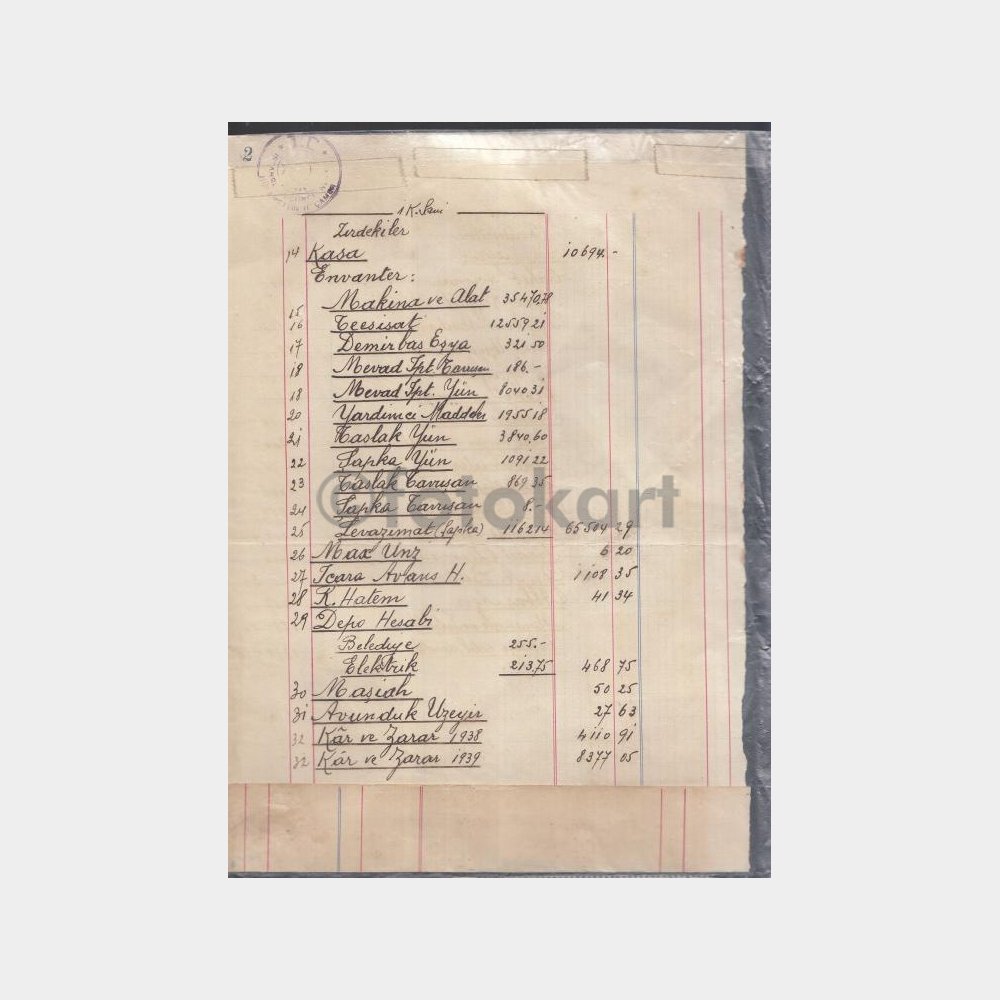 2
T.C.
1 K. Sani
Zirdekiler
14 Kasa 10694.-
Envanter:
15 Makina ve Alat 35470,78
16 Teesisat 12559 21
17 Demirbas Eşya 321 50
18 Mevad Ipt. Tavuşan 186.-
18 Mevad Ipt. Yün 8040 31
20 Yardimci Maddeler 1955 18
21 Taslak Yün 3840,60
22 Şapka Yün 1091 22
23 Taslak Tavuşan 869 35
24 Şapka Tavuşan 8.-
25 Levazimat (Şapka) 1162 14 65504 29
26 Max Unz 6 20
27 Icara Avans H. 1108 35
28 K. Hatem 41 34
29 Depo Hesabi
Belediye 255.-
Elektrik 213,75 468 75
30 Maşiah 50 25
31 Avunduk Uzeyir 27 63
32 Kâr ve Zarar 1938 4110 91
32 Kâr ve Zarar 1939 8377 05
©fotokart